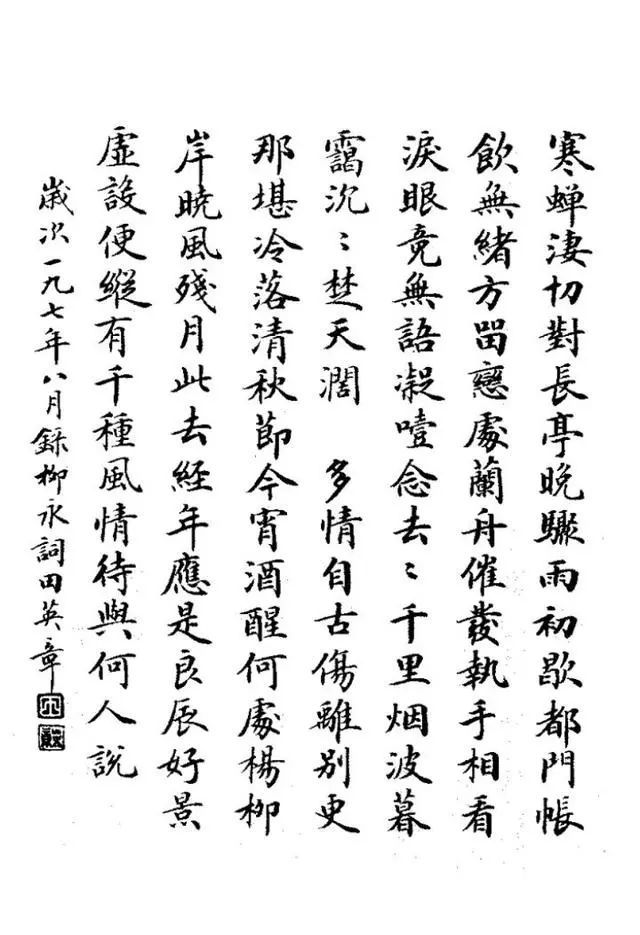 寒蝉淒切對長亭晚驟雨初歇都門帳
飲無緒方留戀處蘭舟催發執手相看
淚眼竟無語凝噎念去〻千里烟波暮
靄沉〻楚天濶　多情自古傷離別更
那堪冷落清秋節今宵酒醒何處楊柳
岸曉風殘月此去經年應是良辰好景
虛設便縱有千種風情待與何人說
歲次一九七年八月錄柳永詞田英章